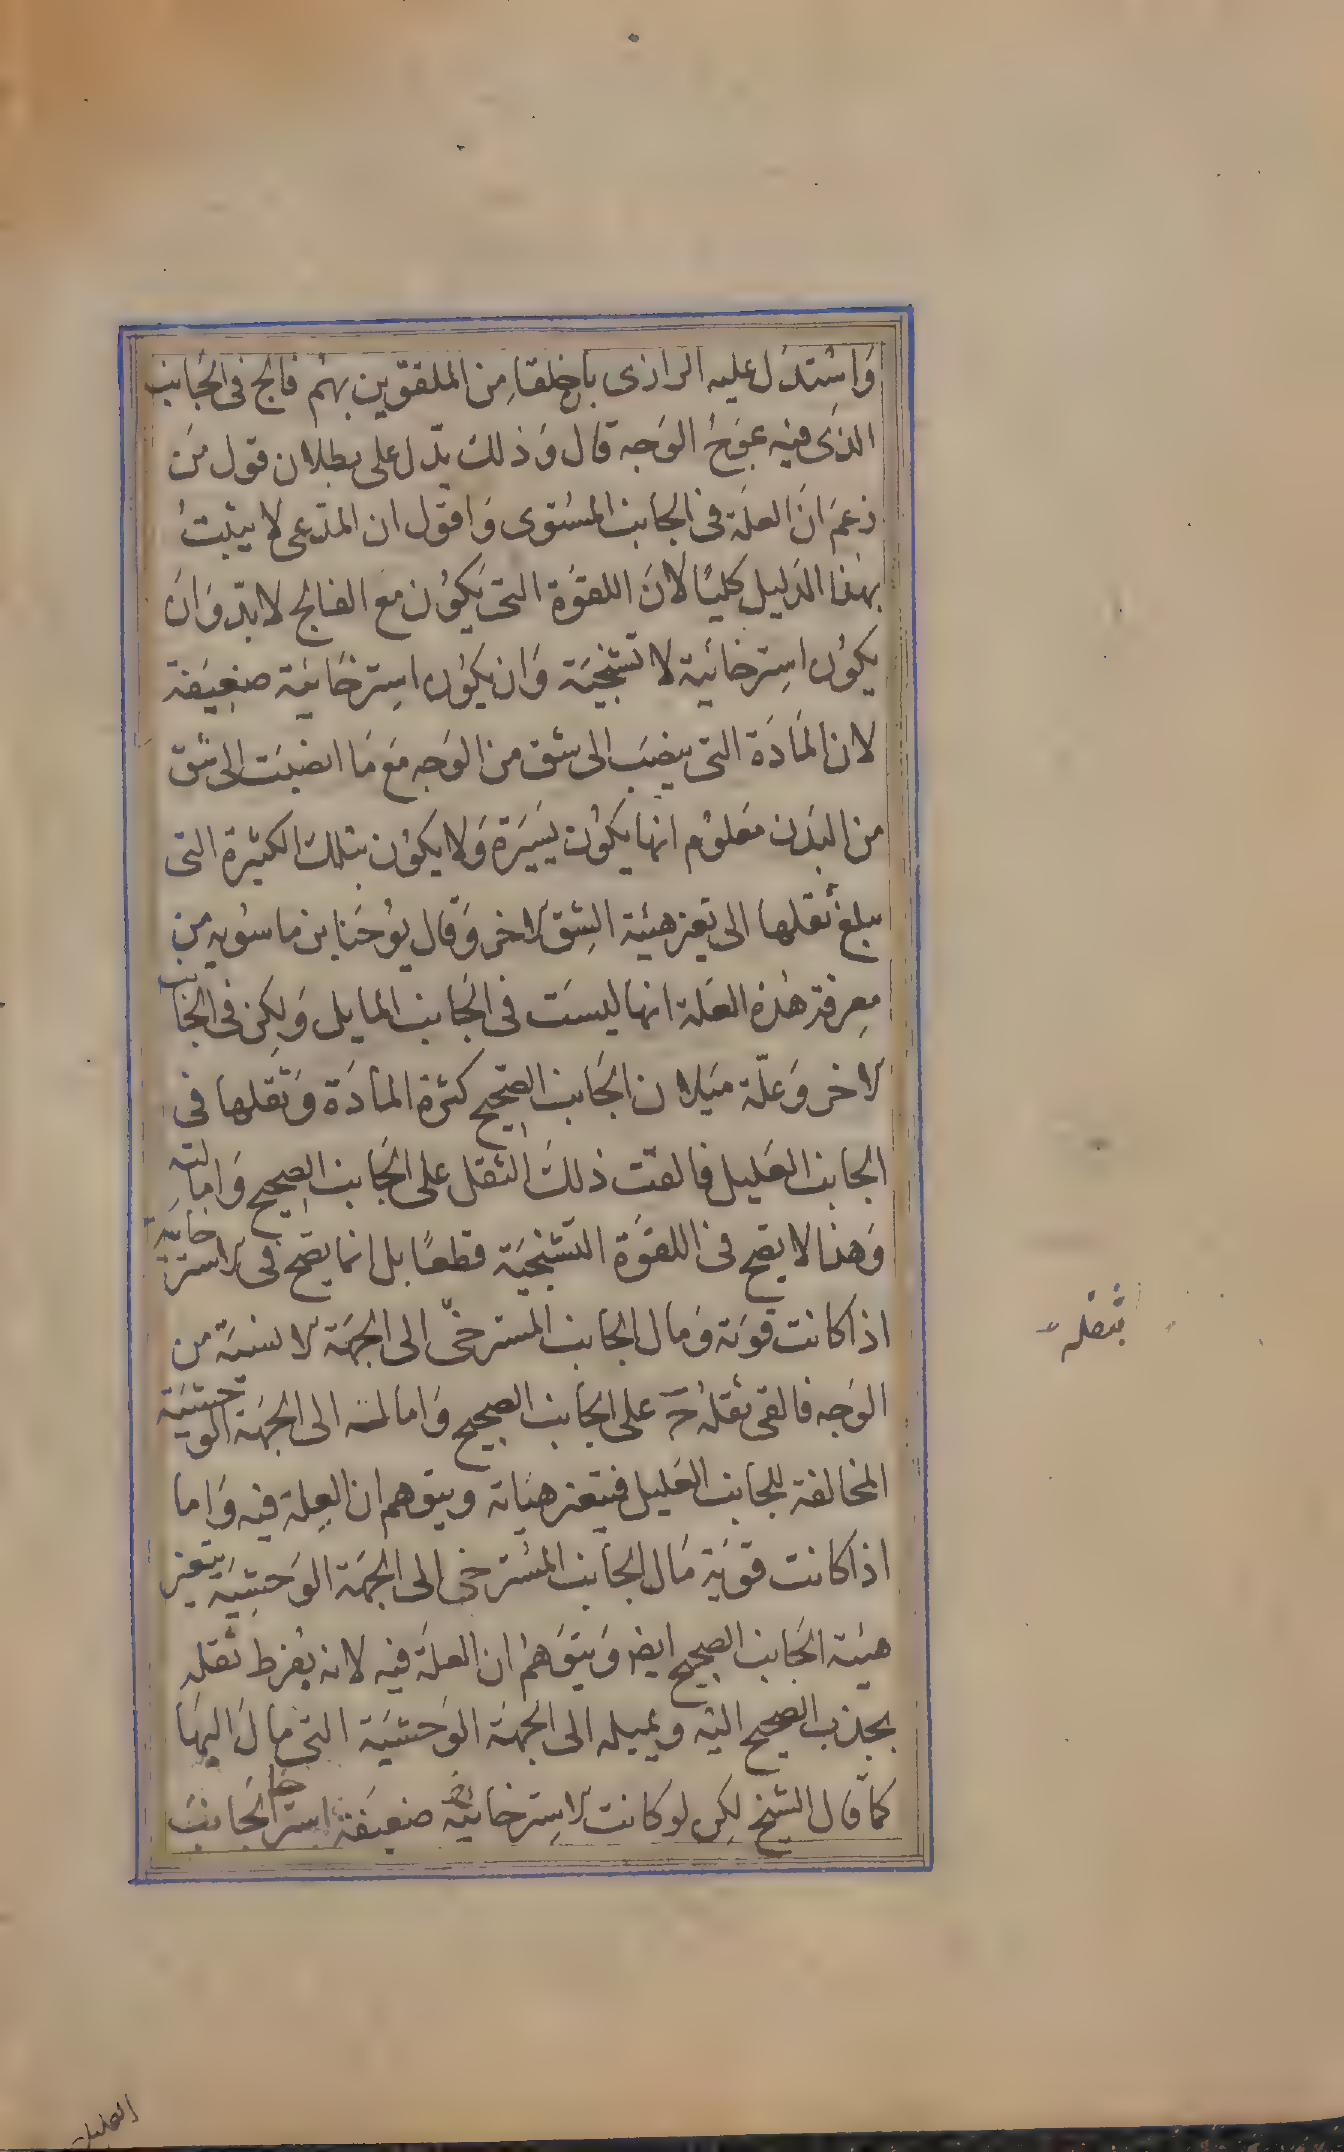 واستدل عليه الرازى بان خلقا من الملقوين بهم فالج فى الجانب
الذى فيه عوج الوجه قال وذلك يدل على بطلان قول من
زعم ان العلة فى الجانب المستوى واقول ان المدعى لا يثبت
بهذا الدليل كليا لان اللقوة التى يكون مع الفالج لا بد وان
يكون استرخائية لا تشنجية وان يكون استرخائية ضعيفة
لان المادة التى ينصب الى شق من الوجه مع ما انصبت الى شق
من البدن معلوم انها يكون يسيرة ولا يكون بتلك الكثيرة التى
يبلغ ثقلها الى تغير هيئة الشق الاخر وقال يوحنا بن ماسويه من
معرفة هذه العلة انها ليست فى الجانب المايل ولكن فى الجانب
الاخر وعلة ميلان الجانب الصحيح كثرة المادة وثقلها فى
الجانب العليل فالقت ذلك الثقل على الجانب الصحيح وامالته
وهذا لا يصح فى اللقوة التشنجية قطعا بل انما يصح فى الاسترخائية
اذا كانت قوية ومال الجانب المسترخى الى الجهة الانسية من
الوجه فالقى ثقله ح على الجانب الصحيح وامالته الى الجهة الوحشية
المخالفة للجانب العليل فيتغير هيئاته ويتوهم ان العلة فيه واما
اذا كانت قوية مال الجانب المسترخى الى الجهة الوحشية يتغير
هيئة الجانب الصحيح ايضا ويتوهم ان العلة فيه لانه بفرط ثقله
يجذب الصحيح اليه ويميله الى الجهة الوحشية التى مال اليها
كما قال الشيخ لكن لو كانت الاسترخائية ضعيفة استرخا الجانب
بثقله
العليل